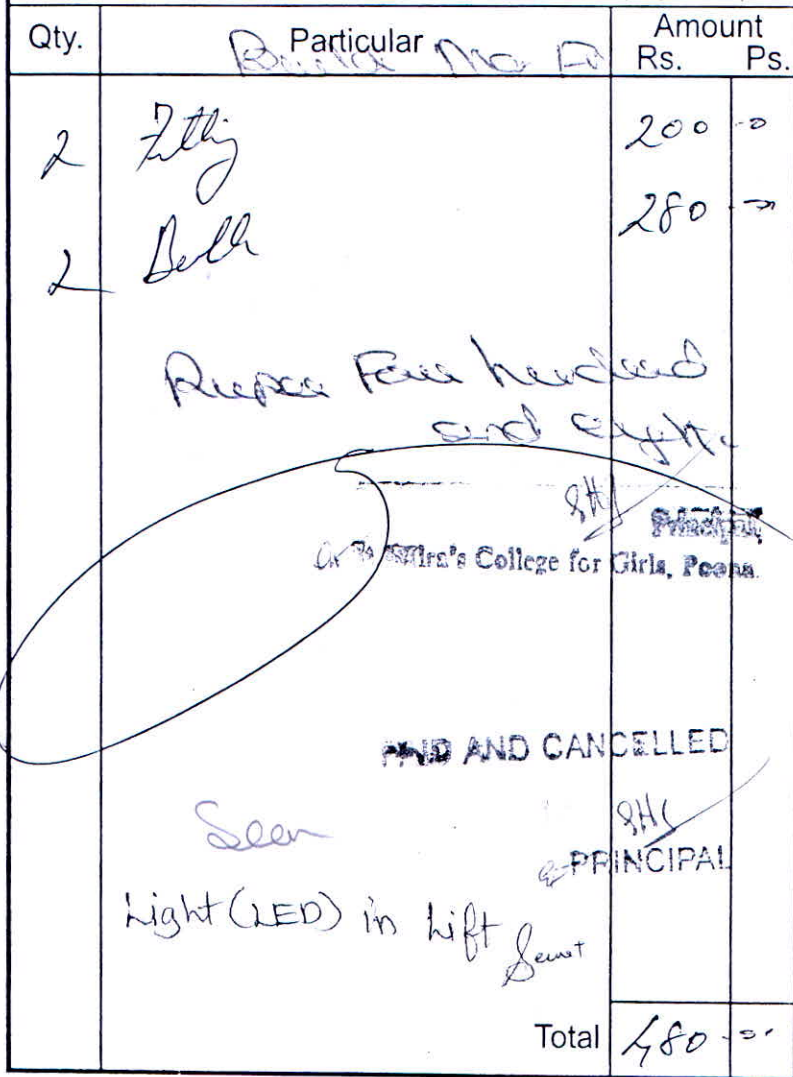 Qty. Particular Amount
Rs. Ps.
2 Fitting 200 -0
2 Bulb 280
Rupees Four hundred
and eighty
Principal,
Mira's College for Girls, Poona.
PAID AND CANCELLED
Seen
PRINCIPAL
Light (LED) in Lift
Total 480